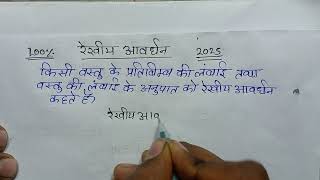 100% रेखीय आवर्धन 2025
किसी वस्तु के प्रतिबिम्ब की लंबाई तथा
वस्तु की लंबाई के अनुपात को रेखीय आवर्धन
कहते हैं।
रेखीय आव